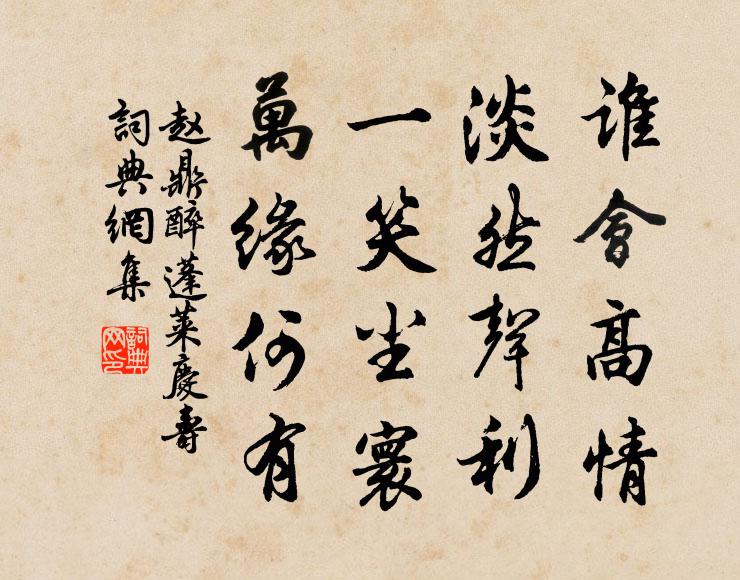 谁會高情
淡然聲利
一笑尘寰
萬緣何有
赵鼎醉蓬莱慶壽
詞典網集
詞典网印